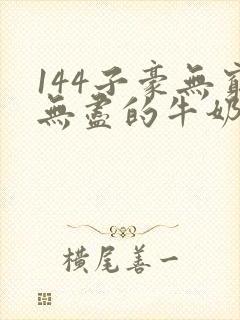 144子豪無窮
無盡的牛奶
橫尾善一